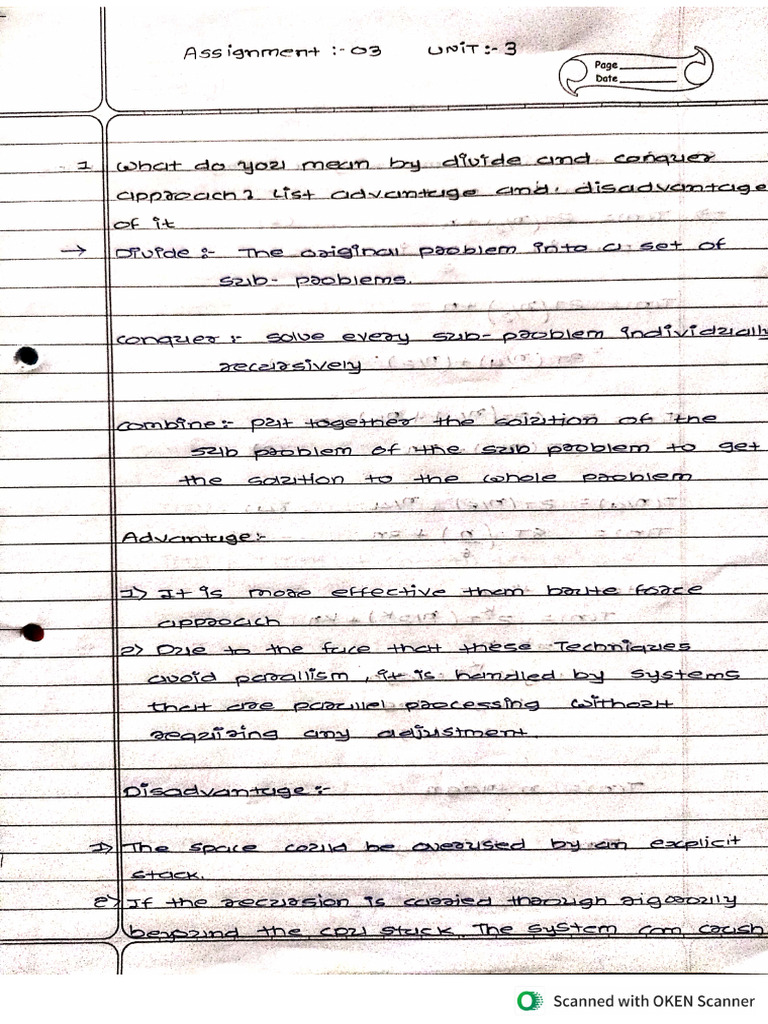 Assignment :- 03 UNIT :- 3
Page
Date
1 What do you mean by divide and conquer
approach? List advantage and disadvantage
of it
→ Divide :- The original problem into a set of
sub-problems.
conquer :- solve every sub-problem individually
recursively
combine :- put together the solution of the
sub problem of the sub problem to get
the solution to the whole problem
Advantage :-
1) It is more effective them brute force
approach
2) Due to the face that these Techniques
avoid parallism, it is handled by systems
that are parallel processing without
requiring any adjustment.
Disadvantage :-
1) The space could be overused by an explicit
stack.
2) If the recursion is carried through rigorously
beyound the cpu stack. The system can crash
Scanned with OKEN Scanner